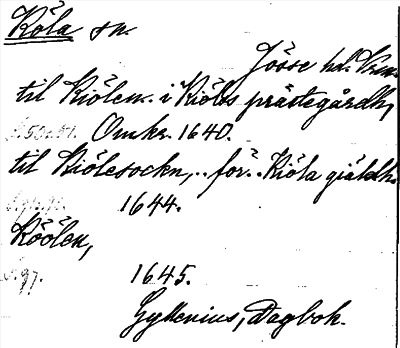 Köla sn.
Jösse hd.
til Kiölen.. i Kiöls prästegårdh,
S. 50, 51. Omkr. 1640.
til Kiölesockn,.. för.. Kiöla giäldh.
1644.
Köölen,
S. 97. 1645.
Gyllenius, Dagbok.